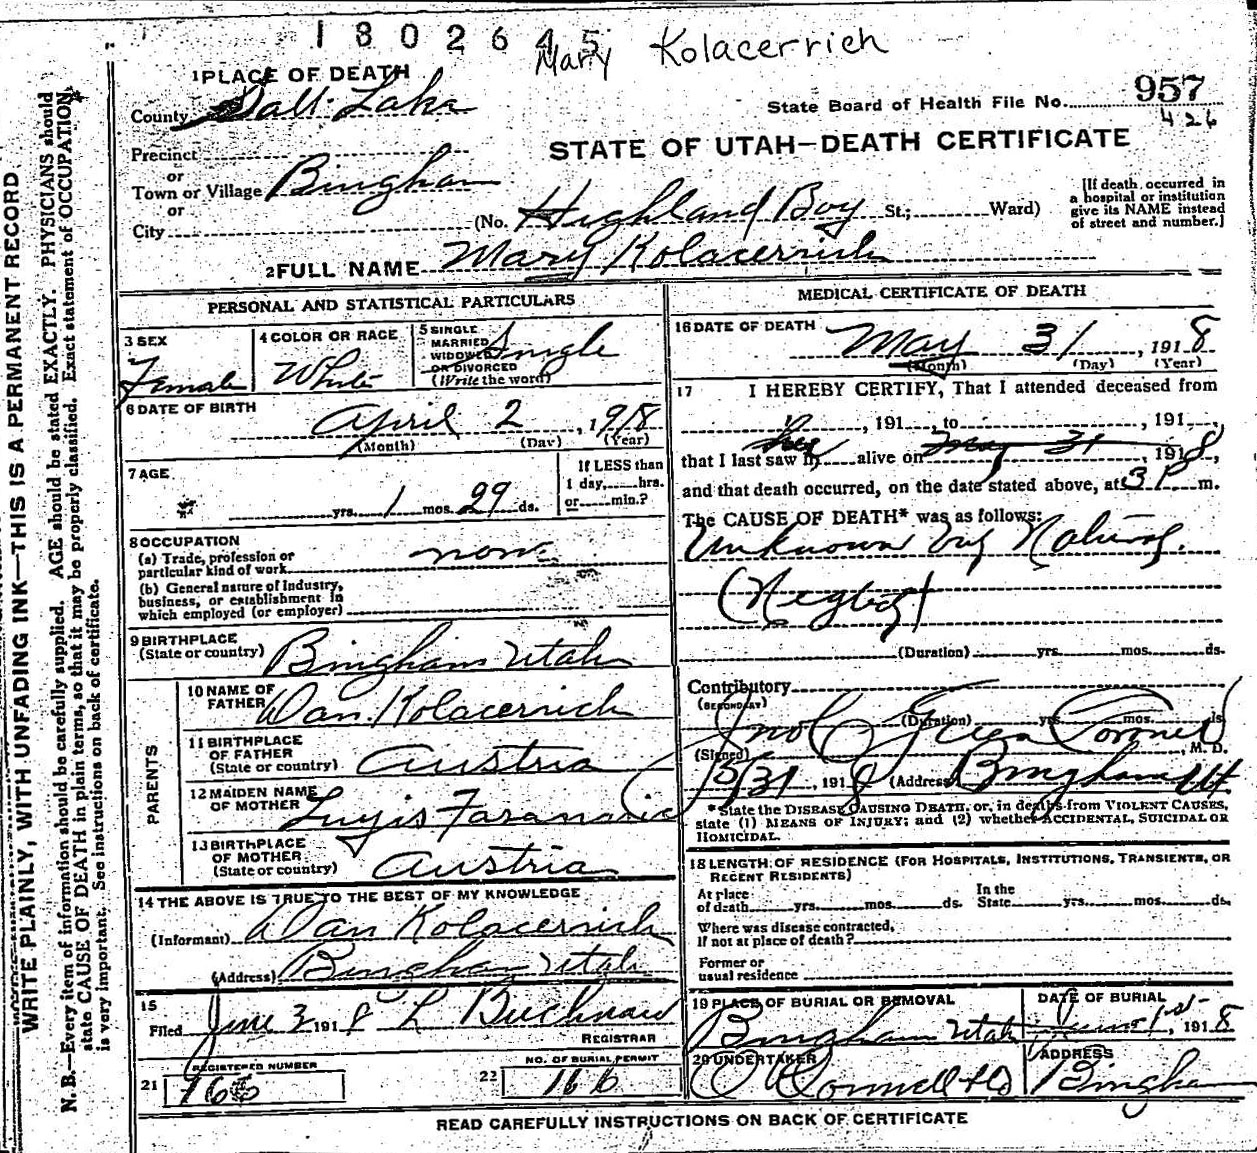 1802645
Mary Kolacerrich
1 PLACE OF DEATH
County Salt Lake
State Board of Health File No. 957
426
STATE OF UTAH—DEATH CERTIFICATE
Precinct
or
Town or Village Bingham
or
City
(No. Highland Boy St.; Ward)
[If death occurred in
a hospital or institution
give its NAME instead
of street and number.]
2 FULL NAME Mary Kolacerrich
PERSONAL AND STATISTICAL PARTICULARS
3 SEX
Female
4 COLOR OR RACE
White
5 SINGLE
MARRIED
WIDOWED
OR DIVORCED
(Write the word)
Single
6 DATE OF BIRTH
April 2, 1918
(Month) (Day) (Year)
7 AGE
yrs. 1 mos. 29 ds.
If LESS than
1 day, hrs.
or min.?
8 OCCUPATION
(a) Trade, profession or
particular kind of work none
(b) General nature of industry,
business, or establishment in
which employed (or employer)
9 BIRTHPLACE
(State or country) Bingham Utah
PARENTS
10 NAME OF
FATHER Dan Kolacerrich
11 BIRTHPLACE
OF FATHER
(State or country) Austria
12 MAIDEN NAME
OF MOTHER
13 BIRTHPLACE
OF MOTHER
(State or country) Austria
14 THE ABOVE IS TRUE TO THE BEST OF MY KNOWLEDGE
(Informant) Dan Kolacerrich
(Address) Bingham Utah
15
Filed June 3 1918
REGISTRAR
REGISTERED NUMBER
21
NO. OF BURIAL PERMIT
22 166
MEDICAL CERTIFICATE OF DEATH
16 DATE OF DEATH
May 31, 1918
(Month) (Day) (Year)
17 I HEREBY CERTIFY, That I attended deceased from
, 191 to , 191 ,
that I last saw h her alive on May 31, 1918,
and that death occurred, on the date stated above, at 3 P m.
The CAUSE OF DEATH* was as follows:
Unknown but Natural.
(Neglect)
(Duration) yrs. mos. ds.
Contributory
(SECONDARY)
(Duration) yrs. mos. ds.
(Signed) Jno C Green Coroner, M. D.
5/31, 1918 (Address) Bingham Ut.
*State the DISEASE CAUSING DEATH, or, in deaths from VIOLENT CAUSES,
state (1) MEANS OF INJURY; and (2) whether ACCIDENTAL, SUICIDAL OR
HOMICIDAL.
18 LENGTH OF RESIDENCE (FOR HOSPITALS, INSTITUTIONS, TRANSIENTS, OR
RECENT RESIDENTS)
At place
of death yrs. mos. ds.
In the
State yrs. mos. ds.
Where was disease contracted,
if not at place of death?
Former or
usual residence
19 PLACE OF BURIAL OR REMOVAL
Bingham Utah
DATE OF BURIAL
June 1st, 1918
20 UNDERTAKER
O'Donnell & Co
ADDRESS
Bingham
READ CAREFULLY INSTRUCTIONS ON BACK OF CERTIFICATE
WRITE PLAINLY, WITH UNFADING INK—THIS IS A PERMANENT RECORD
N. B.—Every item of information should be carefully supplied. AGE should be stated EXACTLY. PHYSICIANS should
state CAUSE OF DEATH in plain terms, so that it may be properly classified. Exact statement of OCCUPATION
is very important. See instructions on back of certificate.